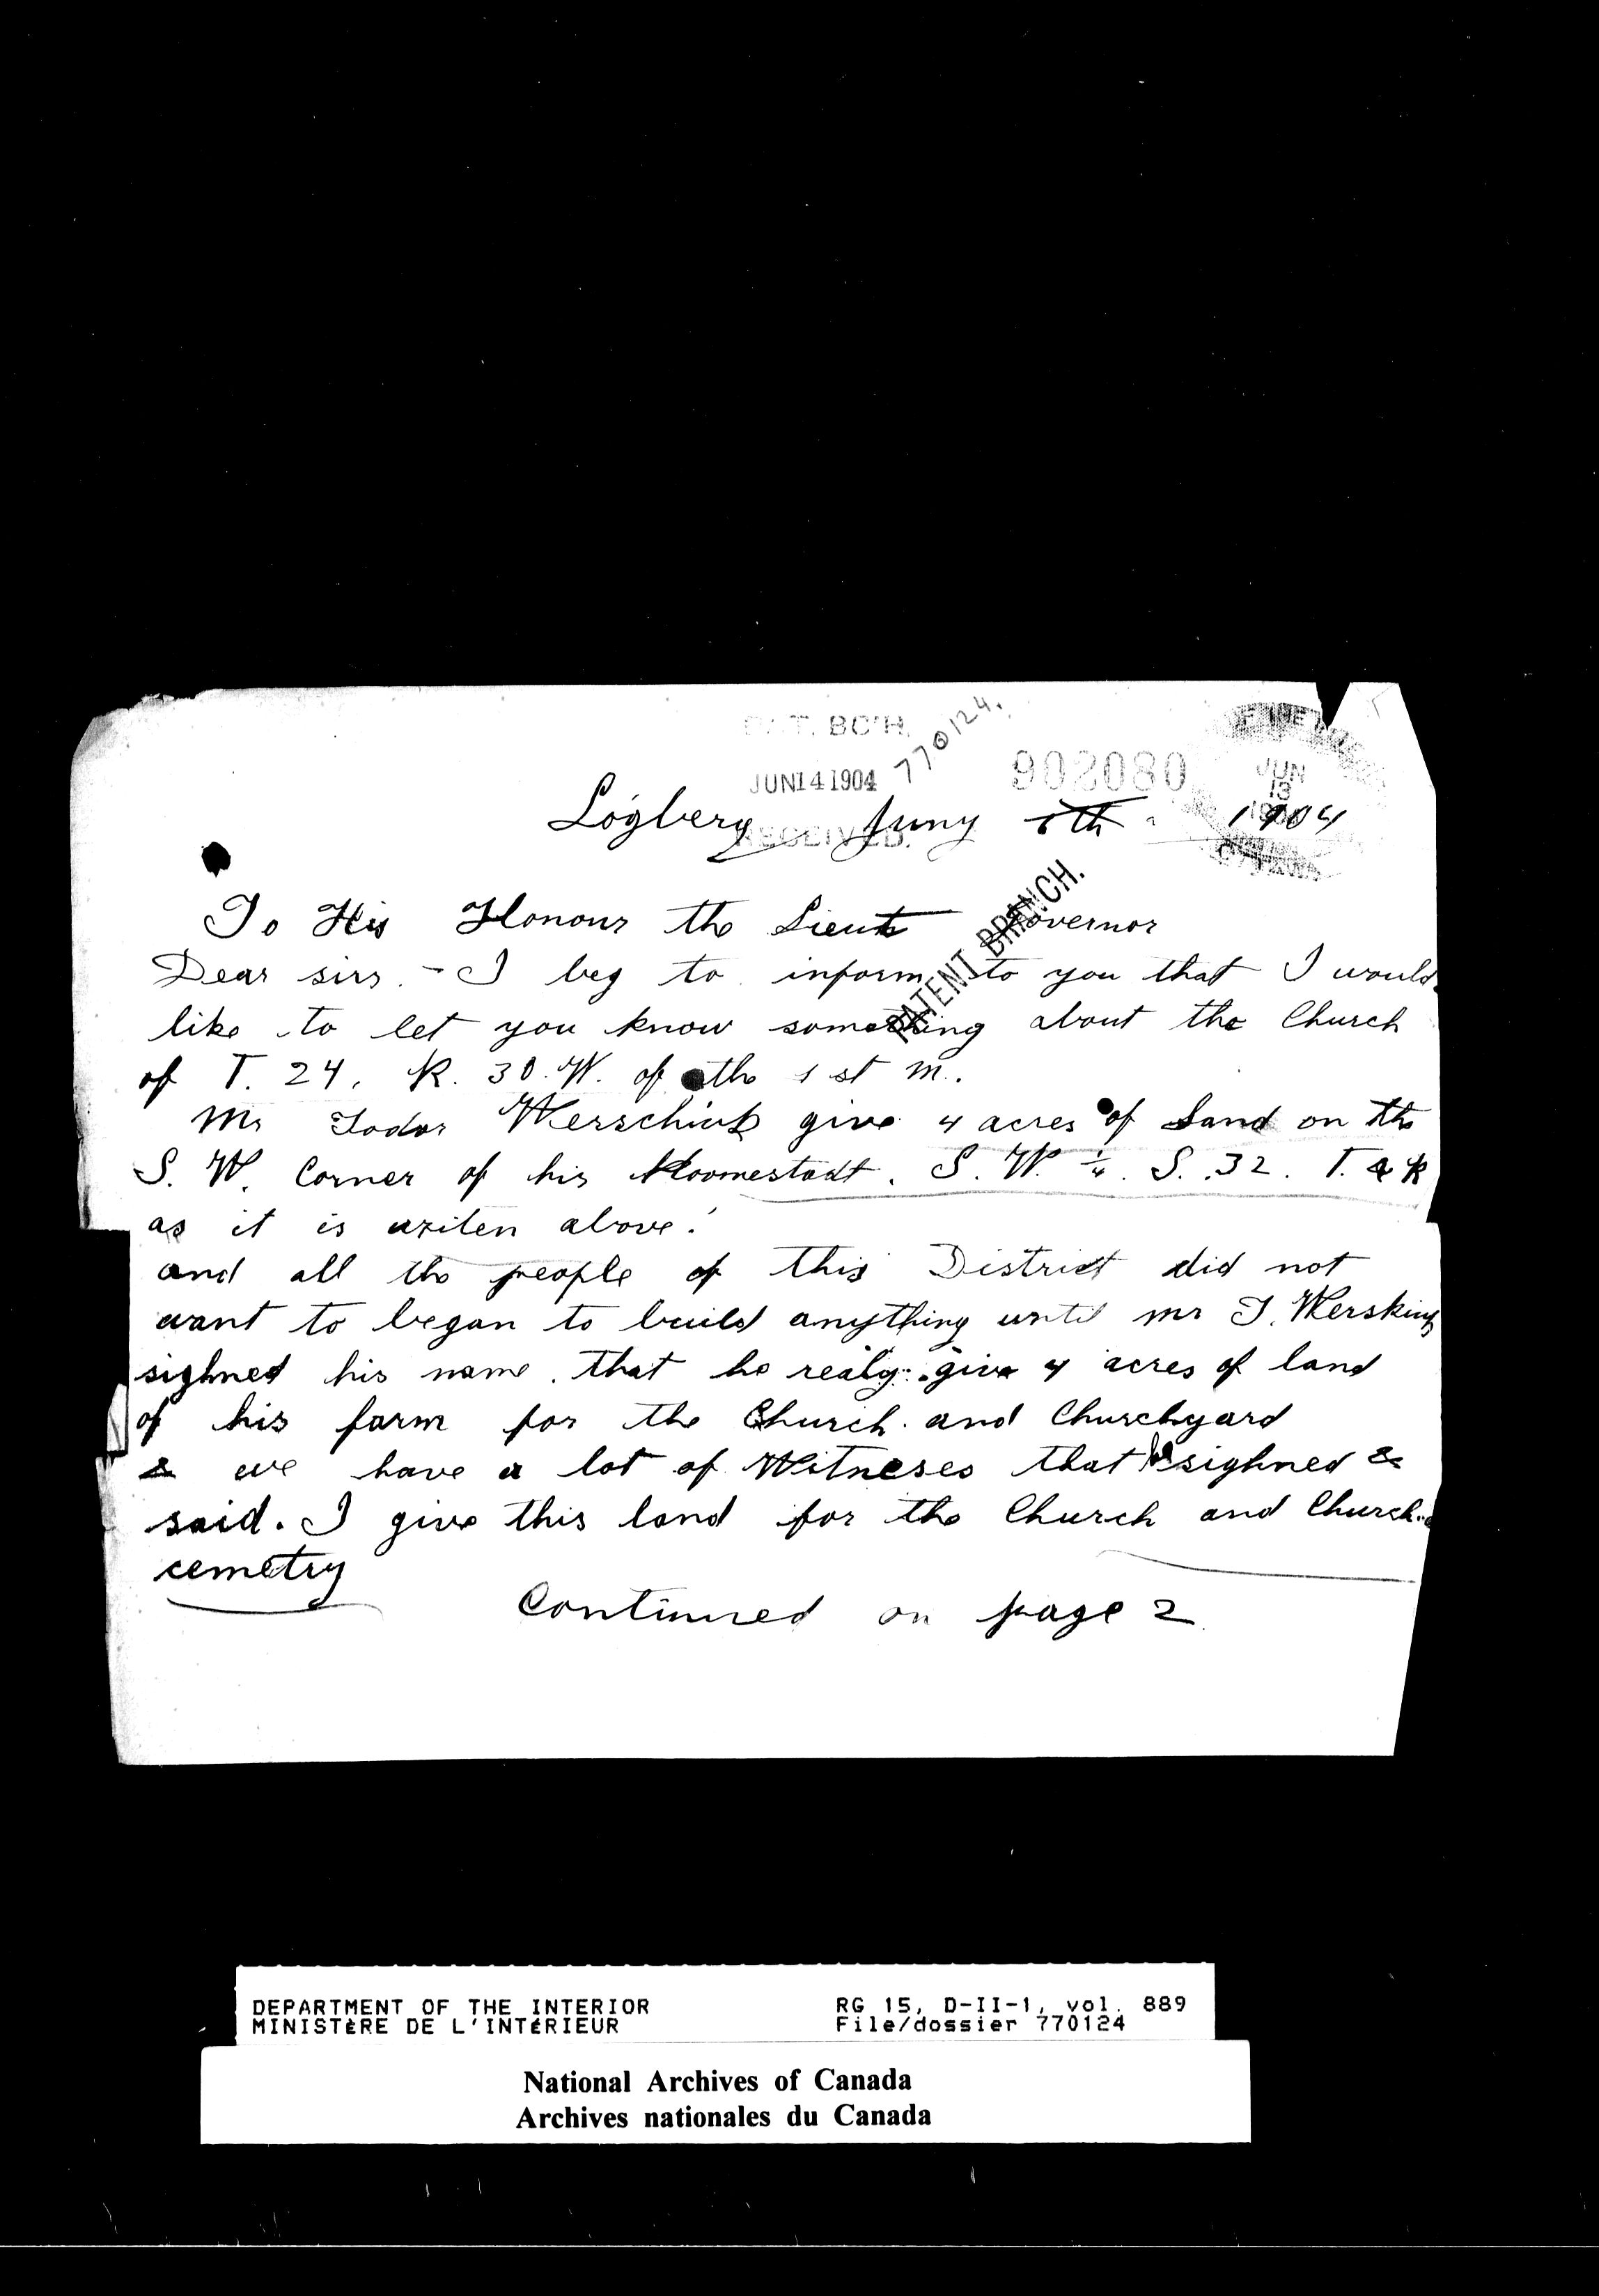 PAT. BC'H.
770124.
902080
JUN 14 1904
JUN
13
RECEIVED.
Lögberg Juny 8th 1904
PATENT BRANCH.
To His Honour the Lieut Governor
Dear sirs. - I beg to inform to you that I would
like to let you know something about the Church
of T. 24. R. 30. W. of the 1 st m.
Mr Fodor Werschiuk give 4 acres of Land on the
S. W. Corner of his Hoomestadt. S. W. ¼. S. 32. T. & R
as it is writen above.
and all the people of this District did not
want to began to build anything until mr F. Werskiuk
sighned his name that he realy give 4 acres of land
of his farm for the Church and Churchyard
& we have a lot of Witneses that sighned &
said. I give this land for the Church and Church
cemetry
Continued on page 2
DEPARTMENT OF THE INTERIOR RG 15, D-II-1, vol. 889
MINISTÈRE DE L'INTÉRIEUR File/dossier 770124
National Archives of Canada
Archives nationales du Canada